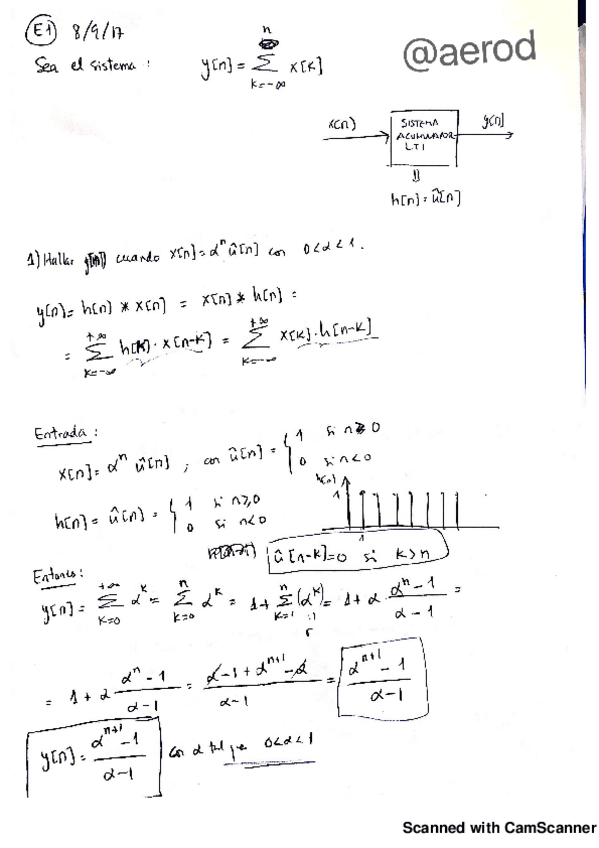 E1 8/9/17
@aerod
Sea el sistema: y[n] = n ∑ k=-∞ x[k]
x[n] SISTEMA ACUMULADOR LTI y[n]
⇓
h[n] = û[n]
1) Hallar y[n] cuando x[n] = αⁿ û[n] con 0<α<1.
y[n] = h[n] * x[n] = x[n] * h[n] =
= +∞ ∑ k=-∞ h[k]·x[n-k] = +∞ ∑ k=-∞ x[k]·h[n-k]
Entrada:
x[n] = αⁿ û[n] , con û[n] = { 1 si n≥0
0 si n<0
h[n] = û[n] = { 1 si n≥0
0 si n<0
h[n]
1
1
û[n-k]=0 si k>n
Entonces:
y[n] = +∞ ∑ k=0 αᵏ = n ∑ k=0 αᵏ = 1 + n ∑ k=1 (αᵏ) = 1 + α (αⁿ-1)/(α-1) =
r
= 1 + α (αⁿ-1)/(α-1) = (α-1+αⁿ⁺¹-α)/(α-1) = (αⁿ⁺¹-1)/(α-1)
y[n] = (αⁿ⁺¹-1)/(α-1) con α tal que 0<α<1
Scanned with CamScanner